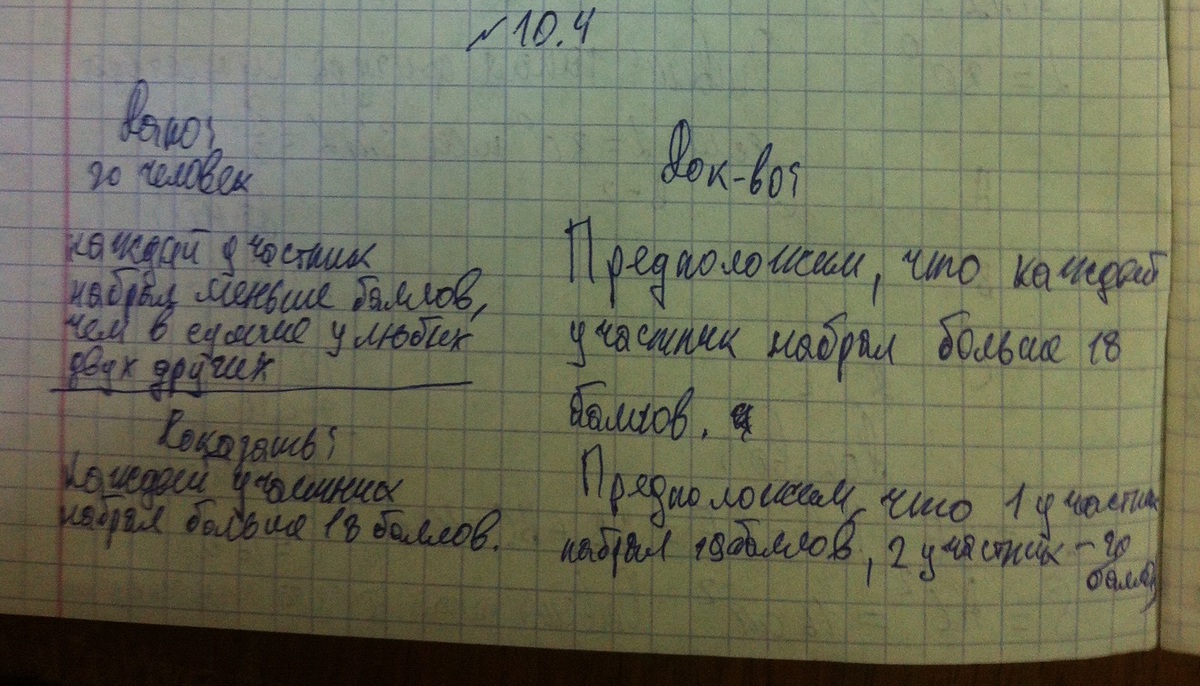 №10.4
Дано:
20 человек
каждый участник
набрал меньше баллов,
чем в сумме у любых
двух других
Доказать:
Каждый участник
набрал больше 18 баллов.
Док-во:
Предположим, что каждый
участник набрал больше 18
баллов.
Предположим, что 1 участник
набрал 19 баллов, 2 участник – 20
баллов,